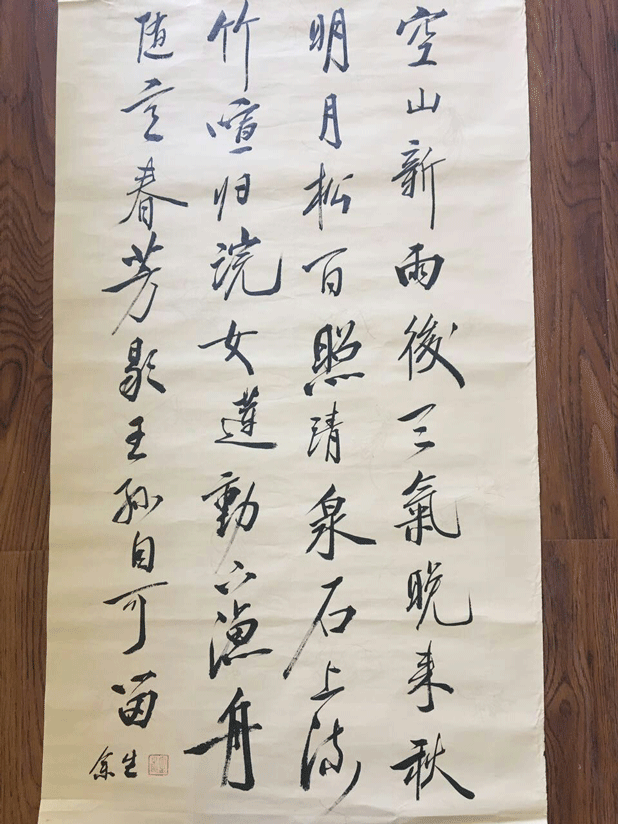 空山新雨後天氣晚来秋
明月松间照清泉石上流
竹喧归浣女蓮動下漁舟
随意春芳歇王孫自可留
余生